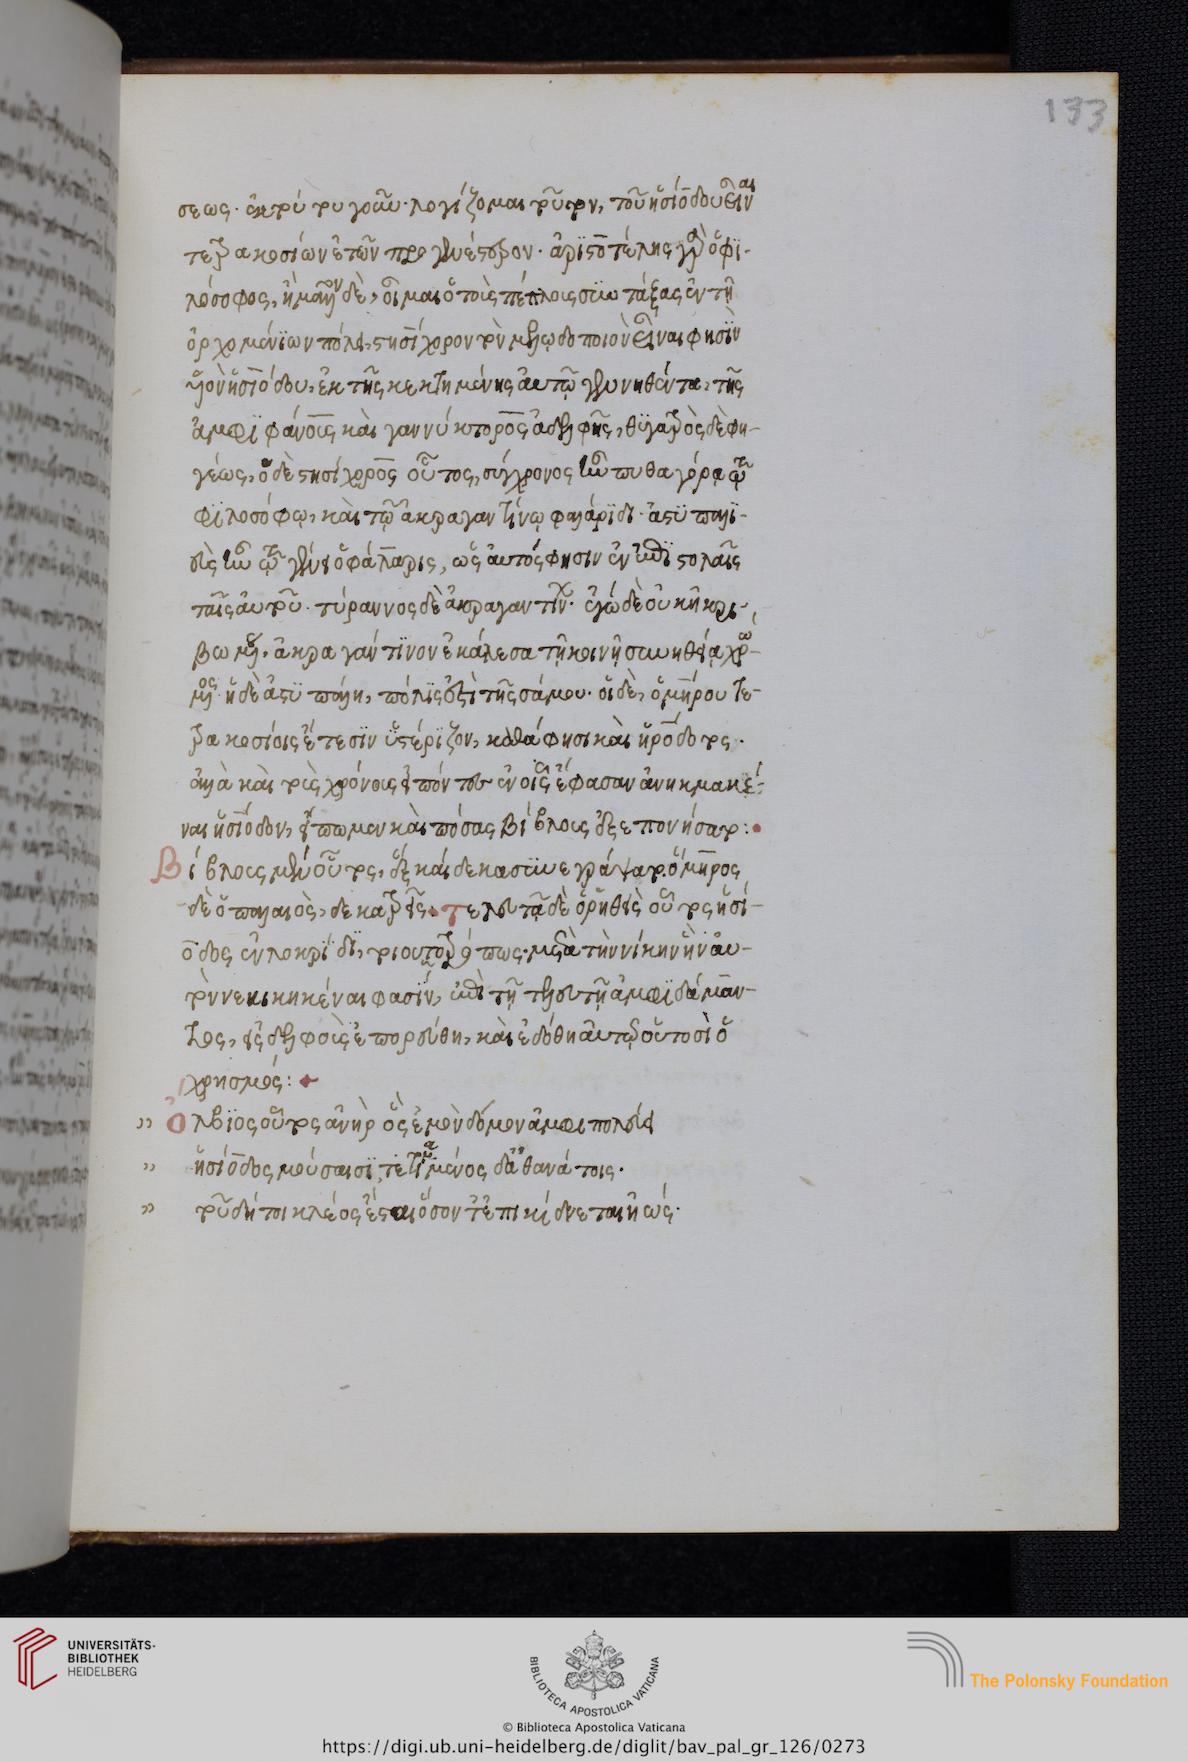 133
σεως. ἐκ τούτου γοῦν λογίζομαι τοῦτον, τοῦ ἡσιόδου εἶναι
τετρακοσίων ἐτῶν προγενέστερον. ἀριστοτέλης γὰρ ὁ φι-
λόσοφος, μᾶλλον δὲ, οἶμαι ὁ τοὺς πέπλους συντάξας ἐν τῇ
ὀρχομενίων πολιτ, στησίχορον τὸν μελῳδοποιὸν εἶναι φησὶν
υἱὸν ἡσιόδου, ἐκ τῆς κεκτημένης αὐτῷ γεννηθέντα, τῆς
ἀμφιφάνους καὶ γαννύκτορος ἀδελφῆς, θυγατρὸς δὲ φη-
γέως, ὁ δὲ στησίχορος οὗτος, σύγχρονος ἦν πυθαγόρᾳ τῷ
φιλοσόφῳ, καὶ τῷ ἀκραγαντίνῳ φαλάριδι. ἀστυπαλι-
δὺς ἦν τῷ γένει ὁ φάλαρις, ὡς αὐτός φησιν ἐν ἐπιστολαῖς
ταῖς αὐτοῦ. τύραννος δὲ ἀκραγαντίνων. ἐγὼ δὲ οὐκ ἠκρι-
βωμένως ἀκραγαντίνον ἐκάλεσα τῇ κοινῇ συνηθείᾳ χρώ-
μενος. ἡ δὲ ἀστυπάλη, πόλις ἐστὶ τῆς σάμου. οἱ δὲ, ὁμήρου τε-
τρακοσίοις ἔτεσιν ὑστέριζον, καθά φησι καὶ ἡρόδοτος.
ἀλλὰ καὶ τοὺς χρόνους εἰπόντες ἐν οἷς ἔφασαν ἀνηκμακέ-
ναι ἡσίοδον, εἴπωμεν καὶ πόσας βίβλους ἐξεπονήσατο:
Βίβλους μὲν οὗτος, ἑξκαίδεκα συνεγράψατο. ὅμηρος
δὲ ὁ παλαιὸς, δεκατρεῖς. Τελευτᾷ δὲ ὁ ῥηθεὶς οὗτος ἡσί-
οδος ἐν λοκρίδι, τοιουτοτρόπως. μετὰ τὴν νίκην ἣν αὐ-
τὸν νενικηκέναι φασὶν, ἐπὶ τῇ τελευτῇ ἀμφιδάμαν-
τος, εἰς δελφοὺς ἐπορεύθη, καὶ ἐδόθη αὐτῷ οὑτοσὶ ὁ
χρησμός:
Ὄλβιος οὗτος ἀνὴρ ὃς ἐμὸν δόμον ἀμφιπολεύει
ἡσίοδος, μούσαισι τετιμένος ἀθανάτοις.
τοῦ δή τοι κλέος ἔσται ὅσον τ' ἐπικίδνεται ἠώς.
UNIVERSITÄTS-
BIBLIOTHEK
HEIDELBERG
BIBLIOTECA APOSTOLICA VATICANA
© Biblioteca Apostolica Vaticana
The Polonsky Foundation
https://digi.ub.uni-heidelberg.de/diglit/bav_pal_gr_126/0273